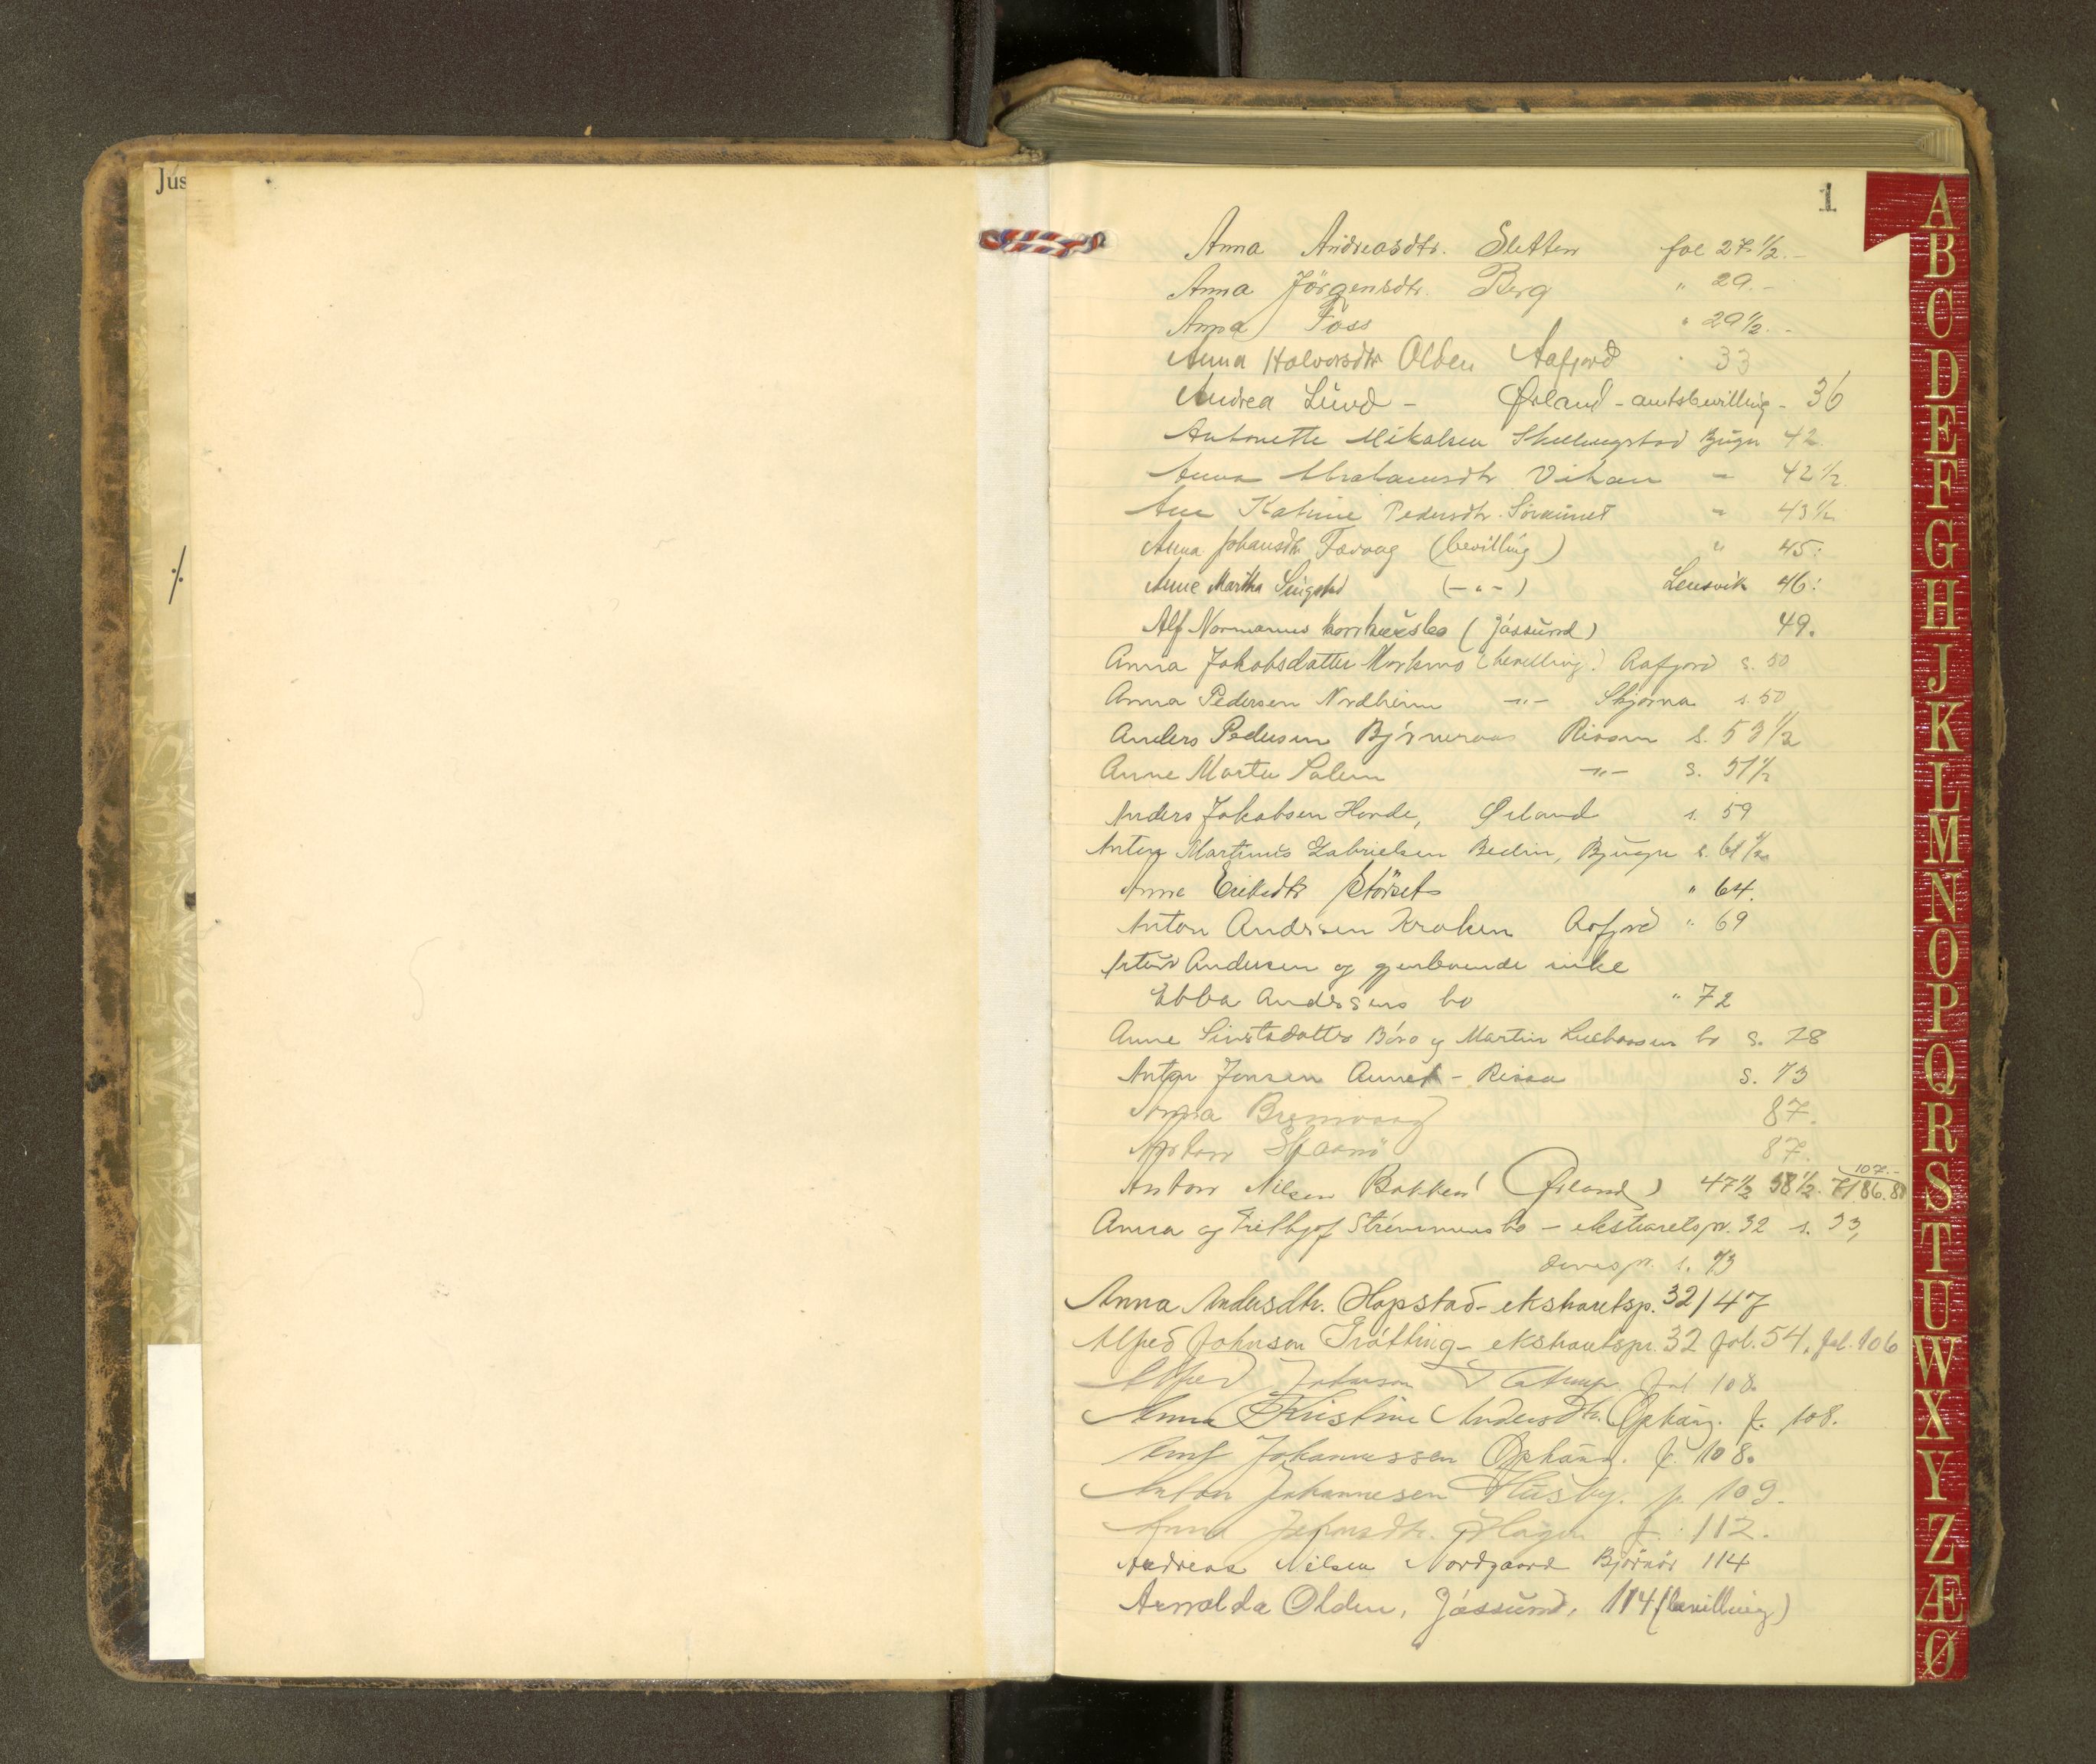 Jus
1
Anna Andreasdtr. Sletten fol 27 1/2.-
Anna Jörgensdtr. Berg " 29.-
Anna Foss " 29 1/2.-
Anna Halvorsdtr Olden Aafjord " 33
Andrea Lund - Ørland - amtsbevilling - 36
Antonette Mikalsen Bjugn 42
Anna Abrahamsdtr Vikan - 42 1/2
Ane Katrine Pedersdtr. - 43 1/2
Anna Johansdtr. Tarvaag (bevilling) " 45:
Anne Martha Singstad (-"-) Lensvik 46:
Alf Normanns (Jössund) 49.
Anna Jakobsdatter Morkmo (bevilling.) Aafjord s. 50
Anna Pedersen Nordheim -"- Skjørna s. 50
Anders Pedersen Rissen s. 53 1/2
Anne Marta Salem -"- s. 51 1/2
Anders Jakobsen Hovde, Ørland s. 59
Anton Martinus Gabrielsen Bjugn s. 61 1/2
Anne Eriksdtr Störset " 64.
Anton Andersen Kraken Aafjord " 69
Andersen og gjenlevende enke
Ebba Andersens bo " 72
Anne og Martin bo s. 78
Anton Jensen Aunet - Rissa s. 73
Anna 87.
87.
Anton Nilsen Bakken (Ørland) 47 1/2 58 1/2 71 86. 107.-
Anna og bo - ekstraretspr. 32 s. 33,
s. 73
Anna Andersdtr. Hopstad - ekstraretsp. 32/47
Alfred Johnson - ekstraretspr. 32 fol. 54, fol. 106
Alfred Johnson fol 108.
Anna Kristine Andersdtr. Ophaug. f. 108.
Johannessen Ophaug. f. 108.
Anton Johannesen Husby. f. 109.
Anna Hagen f. 112.
Andreas Nilsen Nordgaard Björnör 114
Arnolda Olden, Jössund, 114 (bevilling)
A
B
C
D
E
F
G
H
J
K
L
M
N
O
P
Q
R
S
T
U
W
X
Y
Z
Æ
Ø